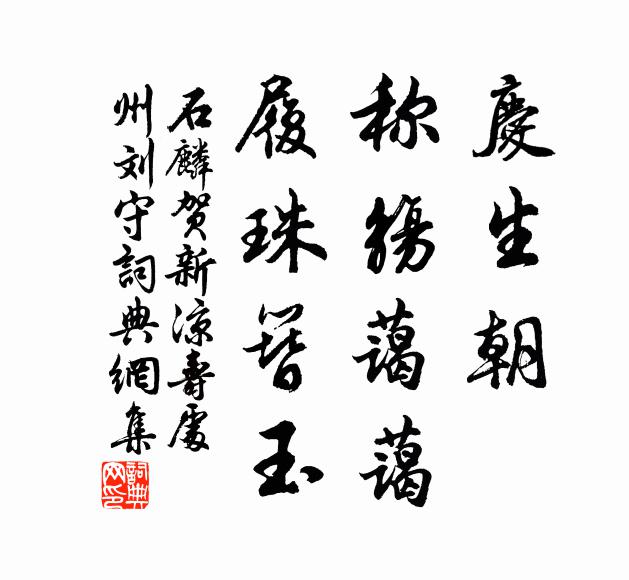 慶生朝
称觴藹藹
履珠簪玉
石麟贺新凉壽處
州刘守詞典網集
詞典
网印